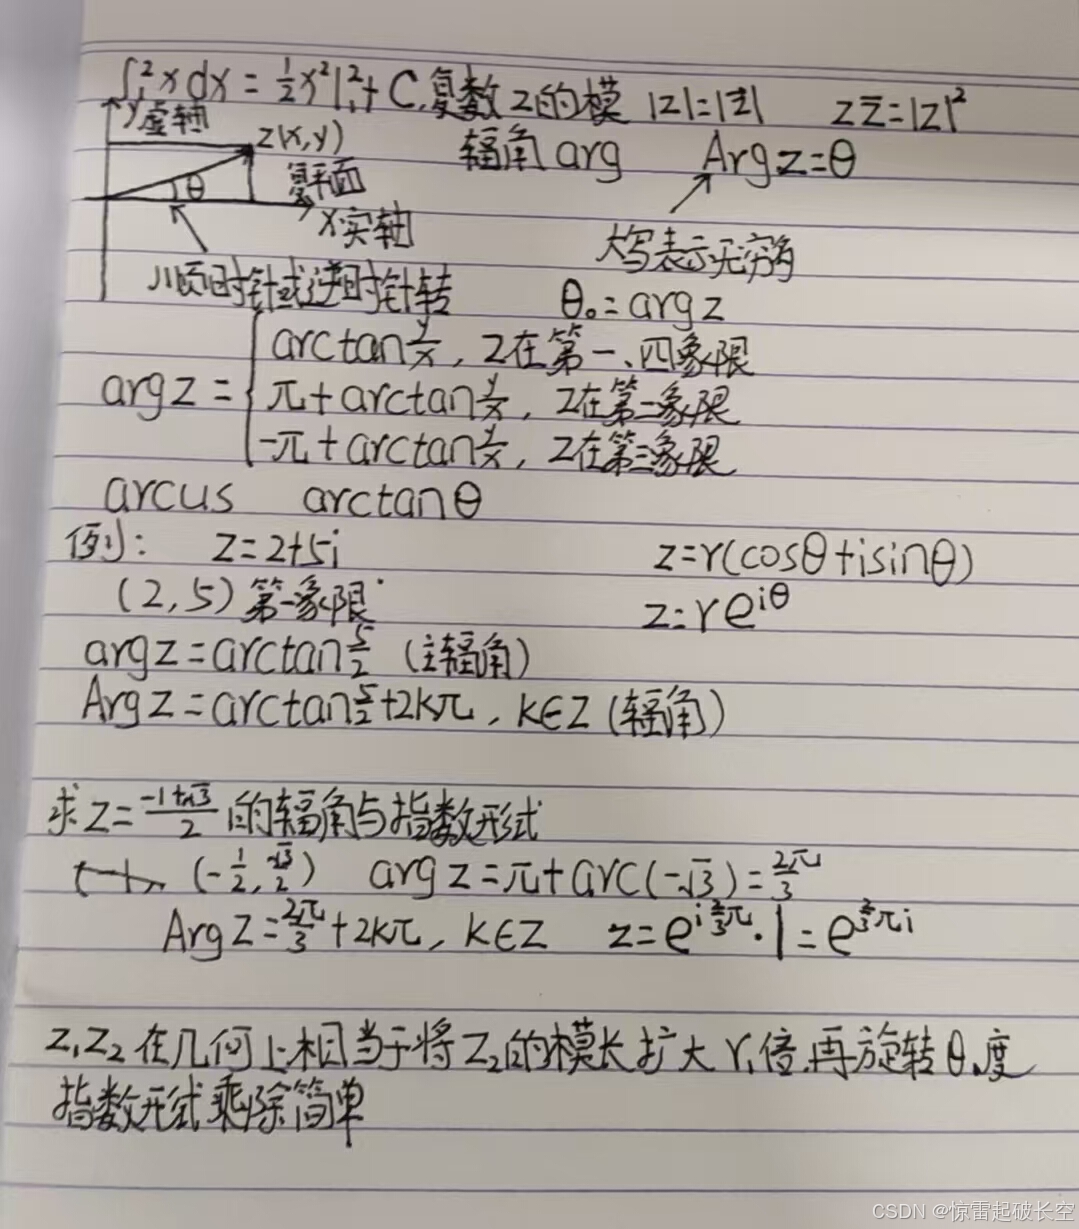 ∫₁² x dx = ½x²|₁² + C, 复数z的模 |z|=|z̄| zz̄=|z|²
y虚轴
z(x,y) 辐角 arg Arg z=θ
θ 复平面
x实轴 大写表示无穷角
顺时针或逆时针转 θ₀=arg z
arctan y/x, z在第一、四象限
arg z = π+arctan y/x, z在第二象限
-π+arctan y/x, z在第三象限
arcus arctanθ
例: z=2+5i z=r(cosθ+isinθ)
(2,5) 第一象限 z=re^{iθ}
arg z=arctan 5/2 (主辐角)
Arg z=arctan 5/2+2kπ, k∈Z (辐角)
求z=(-1+i√3)/2 的辐角与指数形式
(-1/2, √3/2) arg z=π+arc(-√3)=2π/3
Arg z=2π/3+2kπ, k∈Z z=e^{i 2/3 π}·1=e^{2/3 πi}
z₁z₂在几何上相当于将z₂的模长扩大r₁倍,再旋转θ₁度
指数形式乘除简单
CSDN @惊雷起破长空